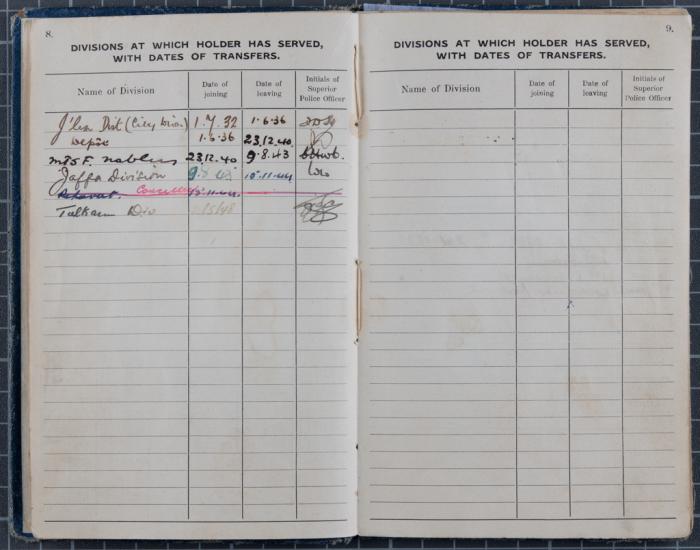 8.
DIVISIONS AT WHICH HOLDER HAS SERVED,
WITH DATES OF TRANSFERS.
Name of Division
Date of joining
Date of leaving
Initials of Superior Police Officer
J'lem Dist (City Divn.) 1.7.32 1.6.36
Depôt 1.6.36 23.12.40
M.T.S.F. Nablus 23.12.40 9.8.43
Jaffa Division 9.8.43 15.11.44
Rehovot. 15.11.44
Tulkarm Div
9.
DIVISIONS AT WHICH HOLDER HAS SERVED,
WITH DATES OF TRANSFERS.
Name of Division
Date of joining
Date of leaving
Initials of Superior Police Officer